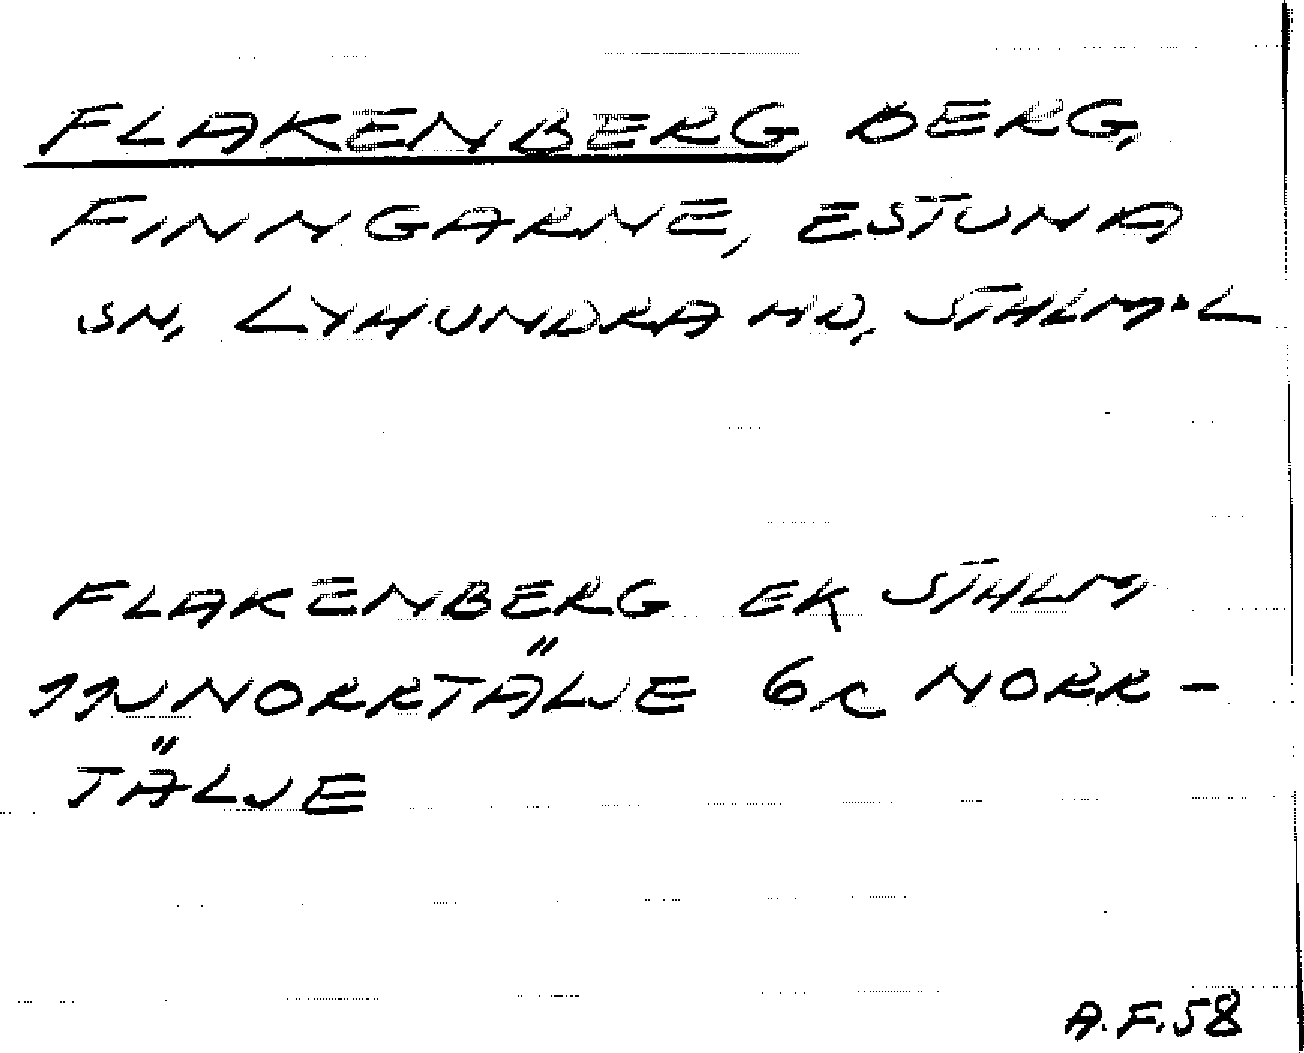 FLAKENBERG BERG,
FINNGARNE, ESTUNA
SN, LYHUNDRA HD, STHLM·L
FLAKENBERG EK STHLM
11J NORRTÄLJE 6c NORR-
TÄLJE
A.F.58